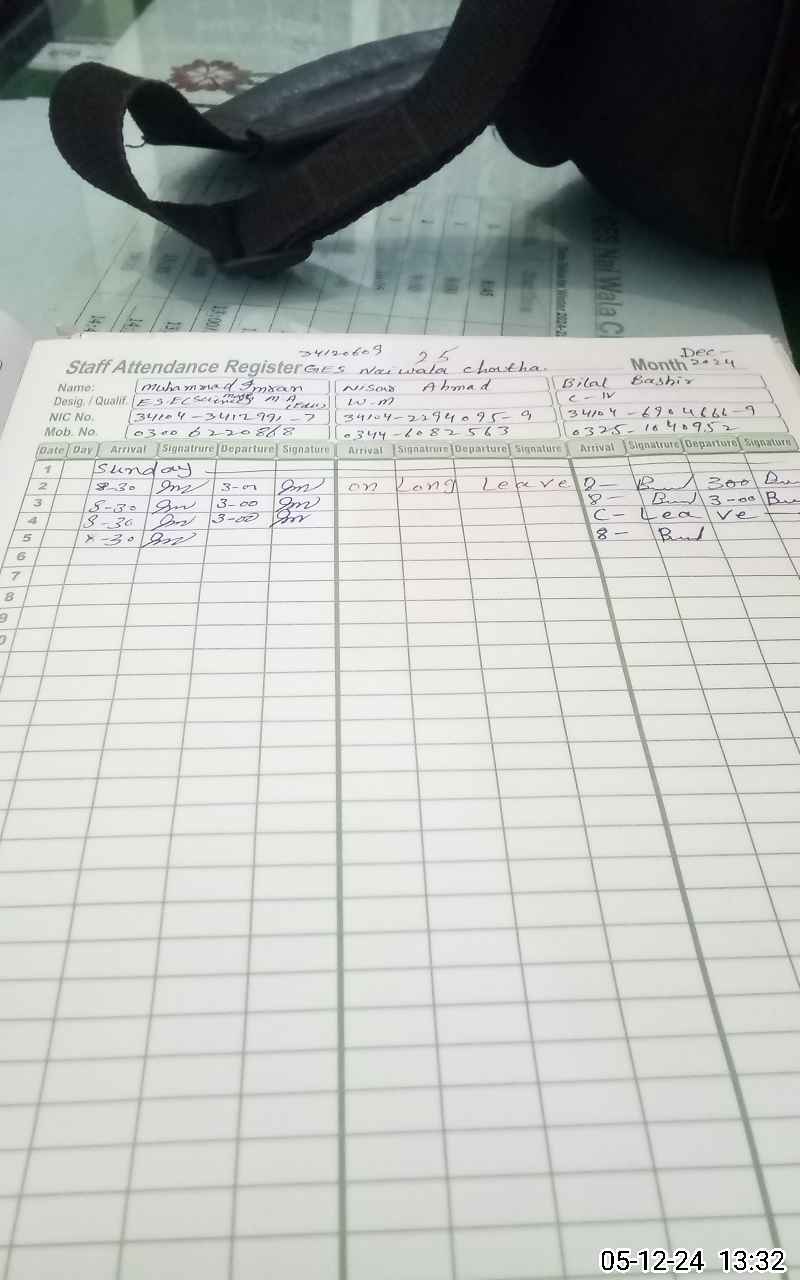 34120609 25
Staff Attendance Register GES Naiwala choutha. Month Dec-2024
Name: Muhammad Imran Nisar Ahmad Bilal Bashir
Desig. / Qualif. E.S.E(Science) M A (Edu) W.M C-IV
NIC No. 34104-3412991-7 34104-2294095-9 34104-6904666-9
Mob. No. 0300 6220868 0344-6082563 0325-1040952
Date Day Arrival Signatrure Departure Signature Arrival Signatrure Departure Signature Arrival Signatrure Departure Signature
1 Sunday
2 8-30 3-00 on Long Leave 8- 300
3 8-30 3-00 8- 3-00
4 8-30 3-00 C-Leave
5 8-30 8-
6
7
8
9
05-12-24 13:32